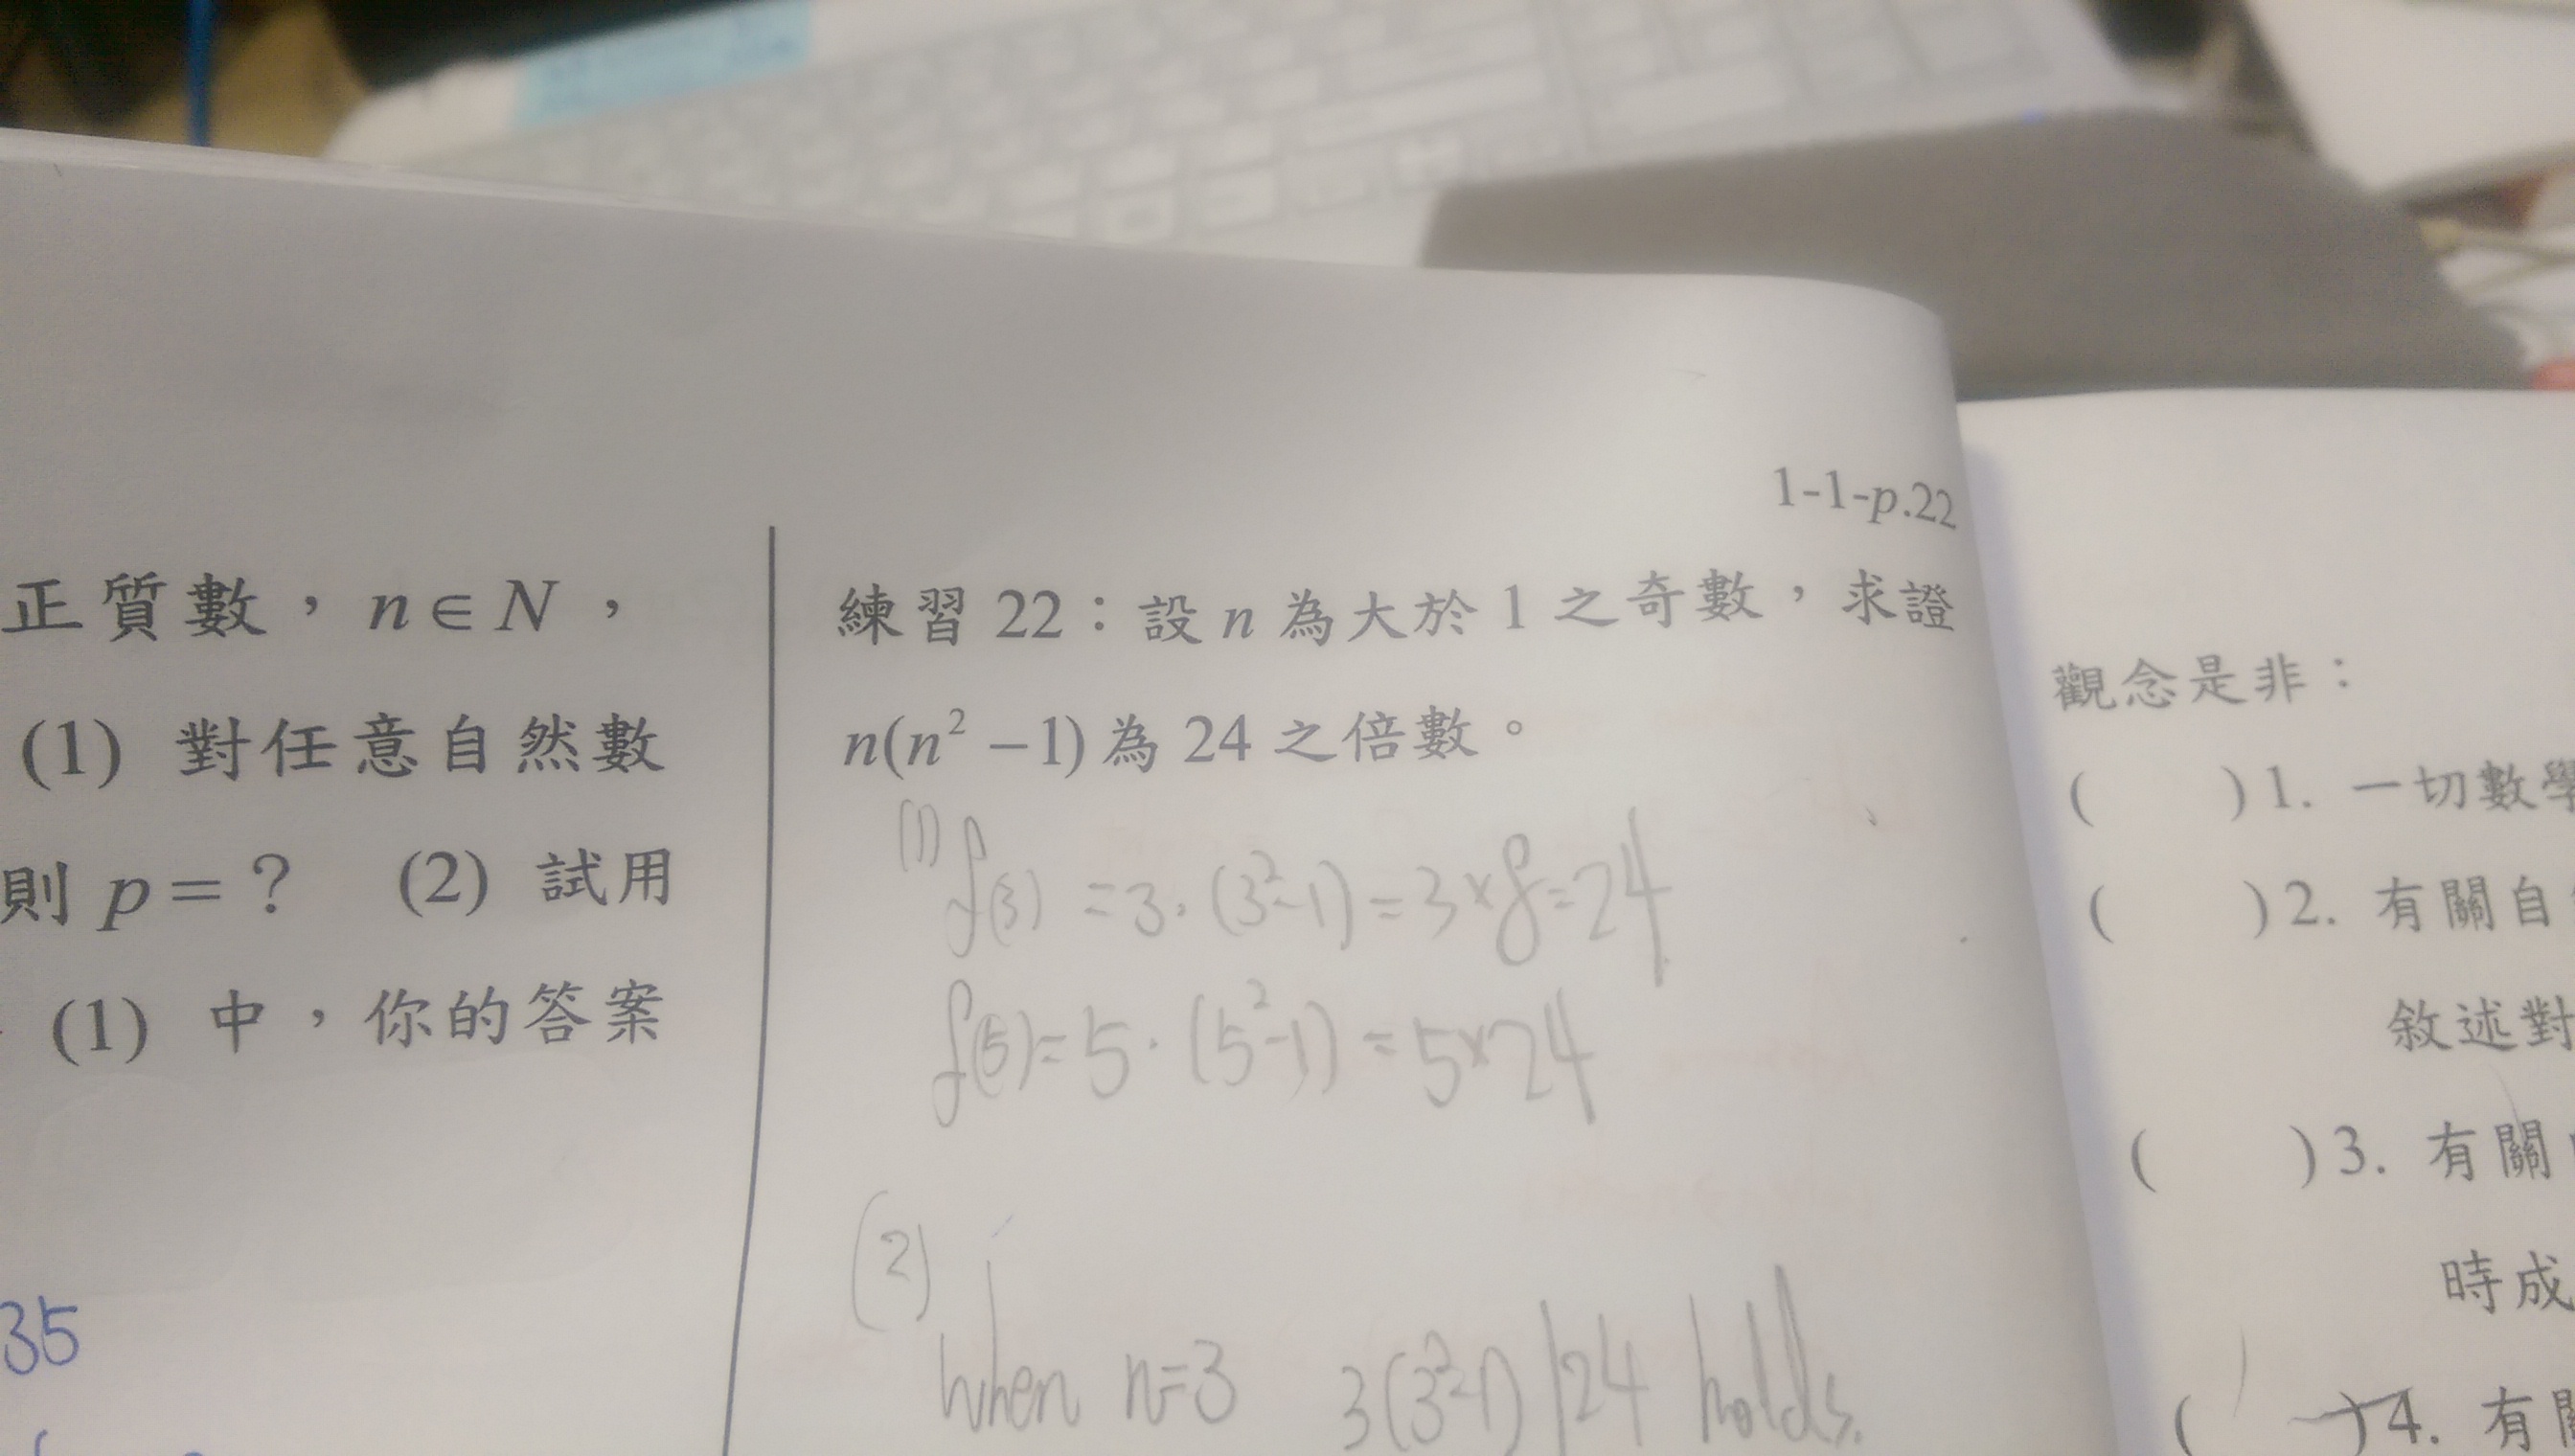 1-1-p.22
正質數，n∈N，
(1) 對任意自然數
則 p=？ (2) 試用
(1) 中，你的答案
35
練習 22：設 n 為大於 1 之奇數，求證
n(n²−1) 為 24 之倍數。
(1) f(3) = 3·(3²-1) = 3×8 = 24
f(5) = 5·(5²-1) = 5×24
(2)
when n=3 3(3²-1) | 24 holds.
觀念是非：
( ) 1. 一切數學
( ) 2. 有關自
敘述對
( ) 3. 有關
時成
( ) 4. 有關